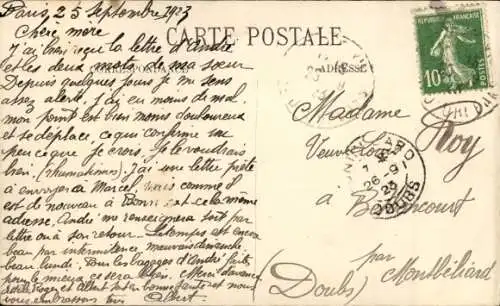 Paris, 25 Septembre 1923
Chère mère
J'ai bien reçu la lettre d'André
et les deux mots de ma sœur
Depuis quelques jours je me sens
assez alerte, j'ai eu moins de mal,
mon point est bien moins douloureux
et se déplace, ce qui confirme un
peu ce que je crois. Je le voudrais
bien. (rhumatisme) J'ai une lettre prête
à envoyer à Marcel, mais comme il
est de nouveau à Bonn est-ce la même
adresse. André me renseignera soit par
lettre ou à son retour. Le temps est encore
beau par intermittence, mauvais dimanche,
beau lundi. Pour les bagages d'André, faites
pour le mieux ce sera bien. Merci d'avance
Roger et Albert sont en bonne santé et nous
vous embrassons Albert
CARTE POSTALE
CORRESPONDANCE
ADRESSE
REPUBLIQUE FRANÇAISE
10
POSTES
Madame
Veuve Roy
à
par Montbéliard
(Doubs)
26 - 9
23
DOUBS